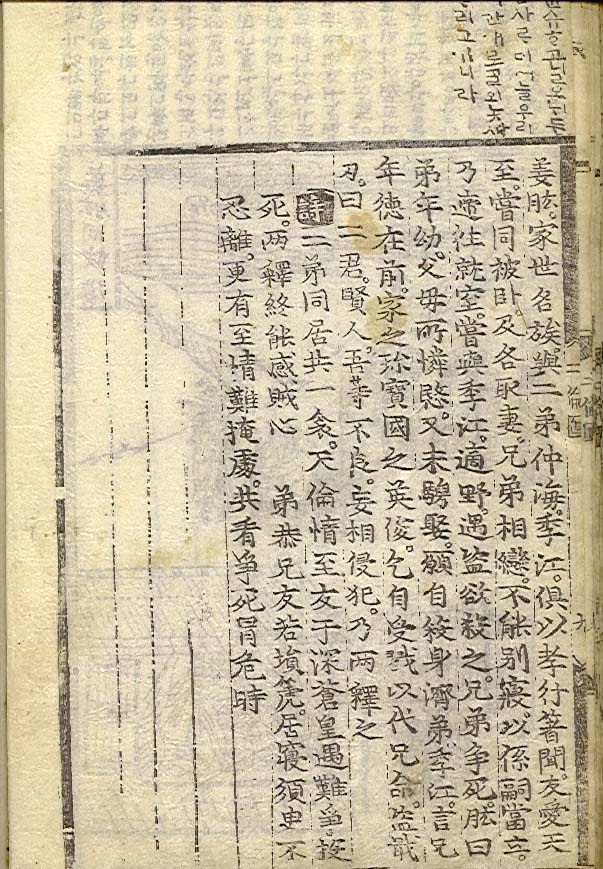 리고가니라
姜肱。家世名族與二弟仲海。季江。俱以孝行著聞。友愛天
至。嘗同被卧。及各取妻。兄弟相戀。不能別寢。以係嗣當立。
乃遞往就室。嘗與季江。適野。遇盜欲殺之。兄弟爭死。肱曰
弟年幼。父母所憐愍。又未聘娶。願自殺身濟弟。季江。言兄
年德在前。家之珍寶國之英俊。乞自受戮以代兄命。盜戢
刃。曰二君。賢人吾等不良。妄相侵犯。乃兩釋之
詩 二弟同居共一衾。天倫情至友于深。蒼皇遇難爭投
死。兩釋終能感賊心 弟恭兄友若塤篪。居寢須臾不
忍離。更有至情難掩處。共看爭死冐危時